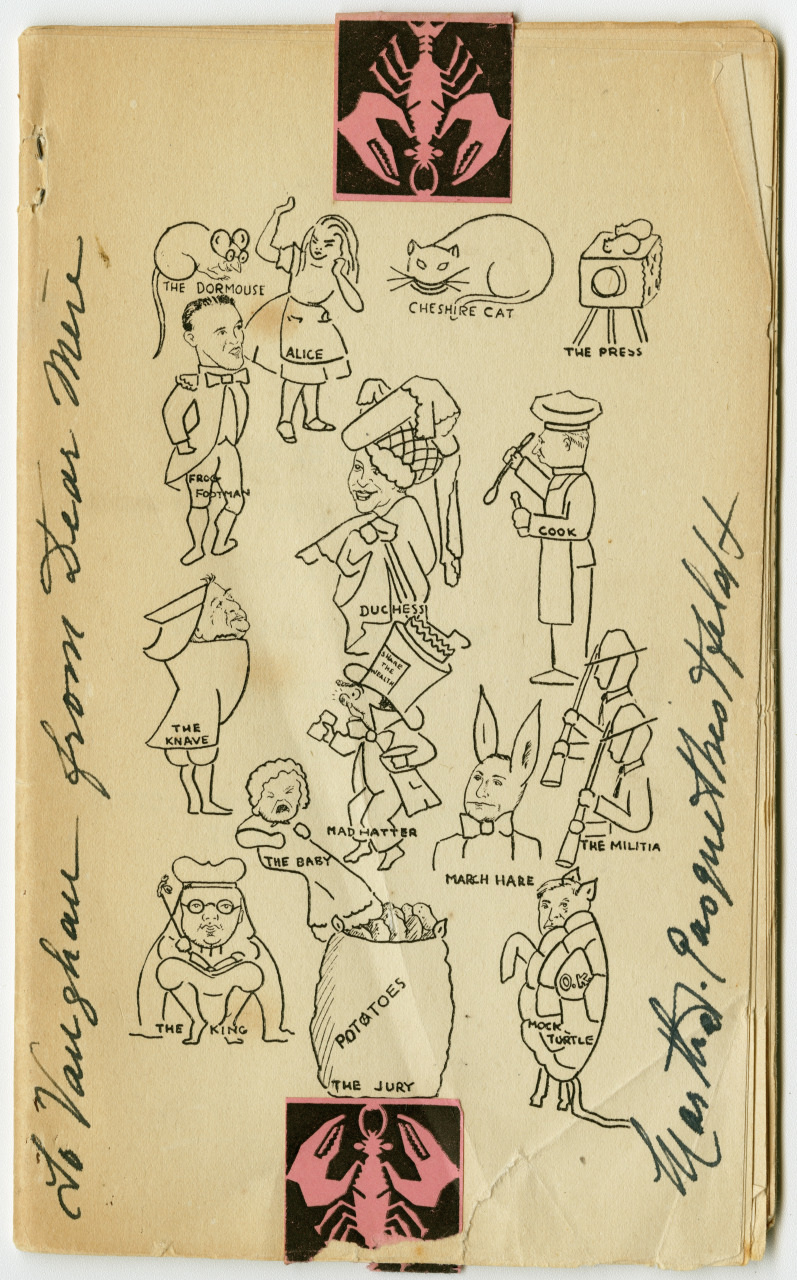 THE DORMOUSE
ALICE
CHESHIRE CAT
THE PRESS
FROG
FOOTMAN
DUCHESS
COOK
THE
KNAVE
SHARE
THE
WEALTH
MAD HATTER
MARCH HARE
THE MILITIA
THE BABY
THE KING
POTATOES
THE JURY
O.K.
MOCK
TURTLE
To Vaughan from Dear Mere
Martha